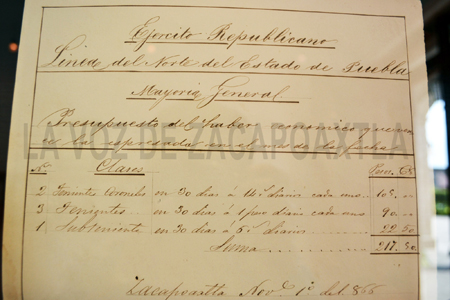 Ejército Republicano
Linia del Norte del Estado de Puebla
Mayoria General
Presupuesto del haber economico que
en la espresada en el mes de la fecha
LA VOZ DE ZACAPOAXTLA
No. Clases Pesos Cs.
2 Tenientes Coroneles en 30 dias á diarios cada uno 105 --
3 Tenientes en 30 dias á 1 peso diario cada uno 90 --
1 Subteniente en 30 dias á diarios 22 50
Suma 217 50
Zacapoaxtla Nove. 1º del 866